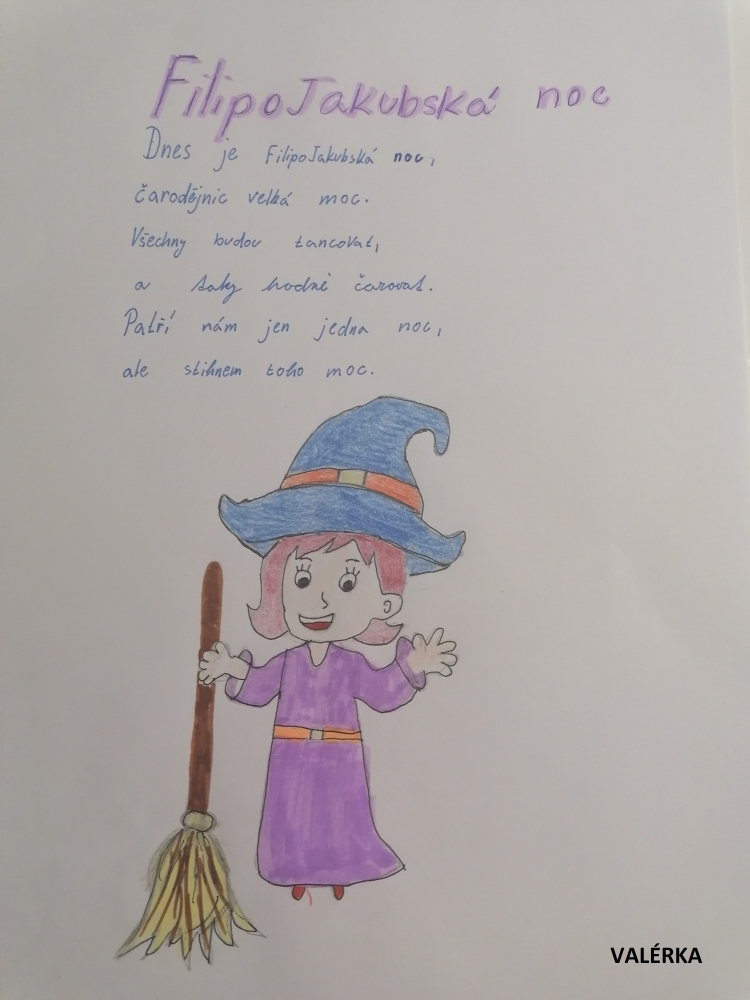 FilipoJakubská noc
Dnes je FilipoJakubská noc,
čarodějnic velká moc.
Všechny budou tancovat,
a taky hodně čarovat.
Patří nám jen jedna noc,
ale stihnem toho moc.
VALÉRKA